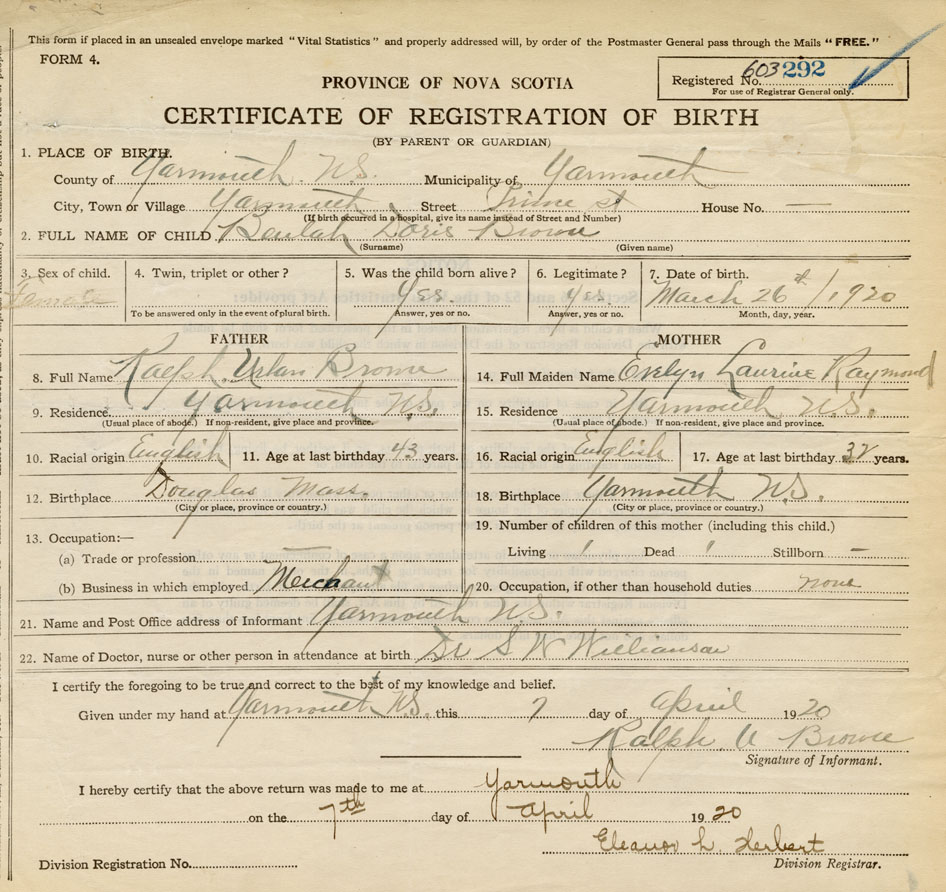 This form if placed in an unsealed envelope marked "Vital Statistics" and properly addressed will, by order of the Postmaster General pass through the Mails "FREE."
FORM 4.
Registered No. 603292
For use of Registrar General only.
PROVINCE OF NOVA SCOTIA
CERTIFICATE OF REGISTRATION OF BIRTH
(BY PARENT OR GUARDIAN)
1. PLACE OF BIRTH.
County of Yarmouth N.S. Municipality of Yarmouth
City, Town or Village Yarmouth Street St House No. —
(If birth occurred in a hospital, give its name instead of Street and Number)
2. FULL NAME OF CHILD Beulah Doris Browne
(Surname) (Given name)
3. Sex of child. 4. Twin, triplet or other? 5. Was the child born alive? 6. Legitimate? 7. Date of birth.
Female Yes Yes. March 26th / 1920
To be answered only in the event of plural birth. Answer, yes or no. Answer, yes or no. Month, day, year.
FATHER
8. Full Name Ralph Urban Browne
9. Residence. Yarmouth N.S.
(Usual place of abode.) If non-resident, give place and province.
10. Racial origin English 11. Age at last birthday 43 years.
12. Birthplace Douglas Mass.
(City or place, province or country.)
13. Occupation:—
(a) Trade or profession —
(b) Business in which employed Merchant
MOTHER
14. Full Maiden Name Evelyn Laurine Raymond
15. Residence Yarmouth N.S.
(Usual place of abode.) If non-resident, give place and province.
16. Racial origin English 17. Age at last birthday 32 years.
18. Birthplace Yarmouth N.S.
(City or place, province or country.)
19. Number of children of this mother (including this child.)
Living 1 Dead 1 Stillborn —
20. Occupation, if other than household duties none
21. Name and Post Office address of Informant Yarmouth N.S.
22. Name of Doctor, nurse or other person in attendance at birth Dr S W Williamson
I certify the foregoing to be true and correct to the best of my knowledge and belief.
Given under my hand at Yarmouth N.S. this 7 day of April 1920
Ralph U Browne
Signature of Informant.
I hereby certify that the above return was made to me at Yarmouth
on the 7th day of April 1920
Eleanor L. Herbert
Division Registration No. Division Registrar.